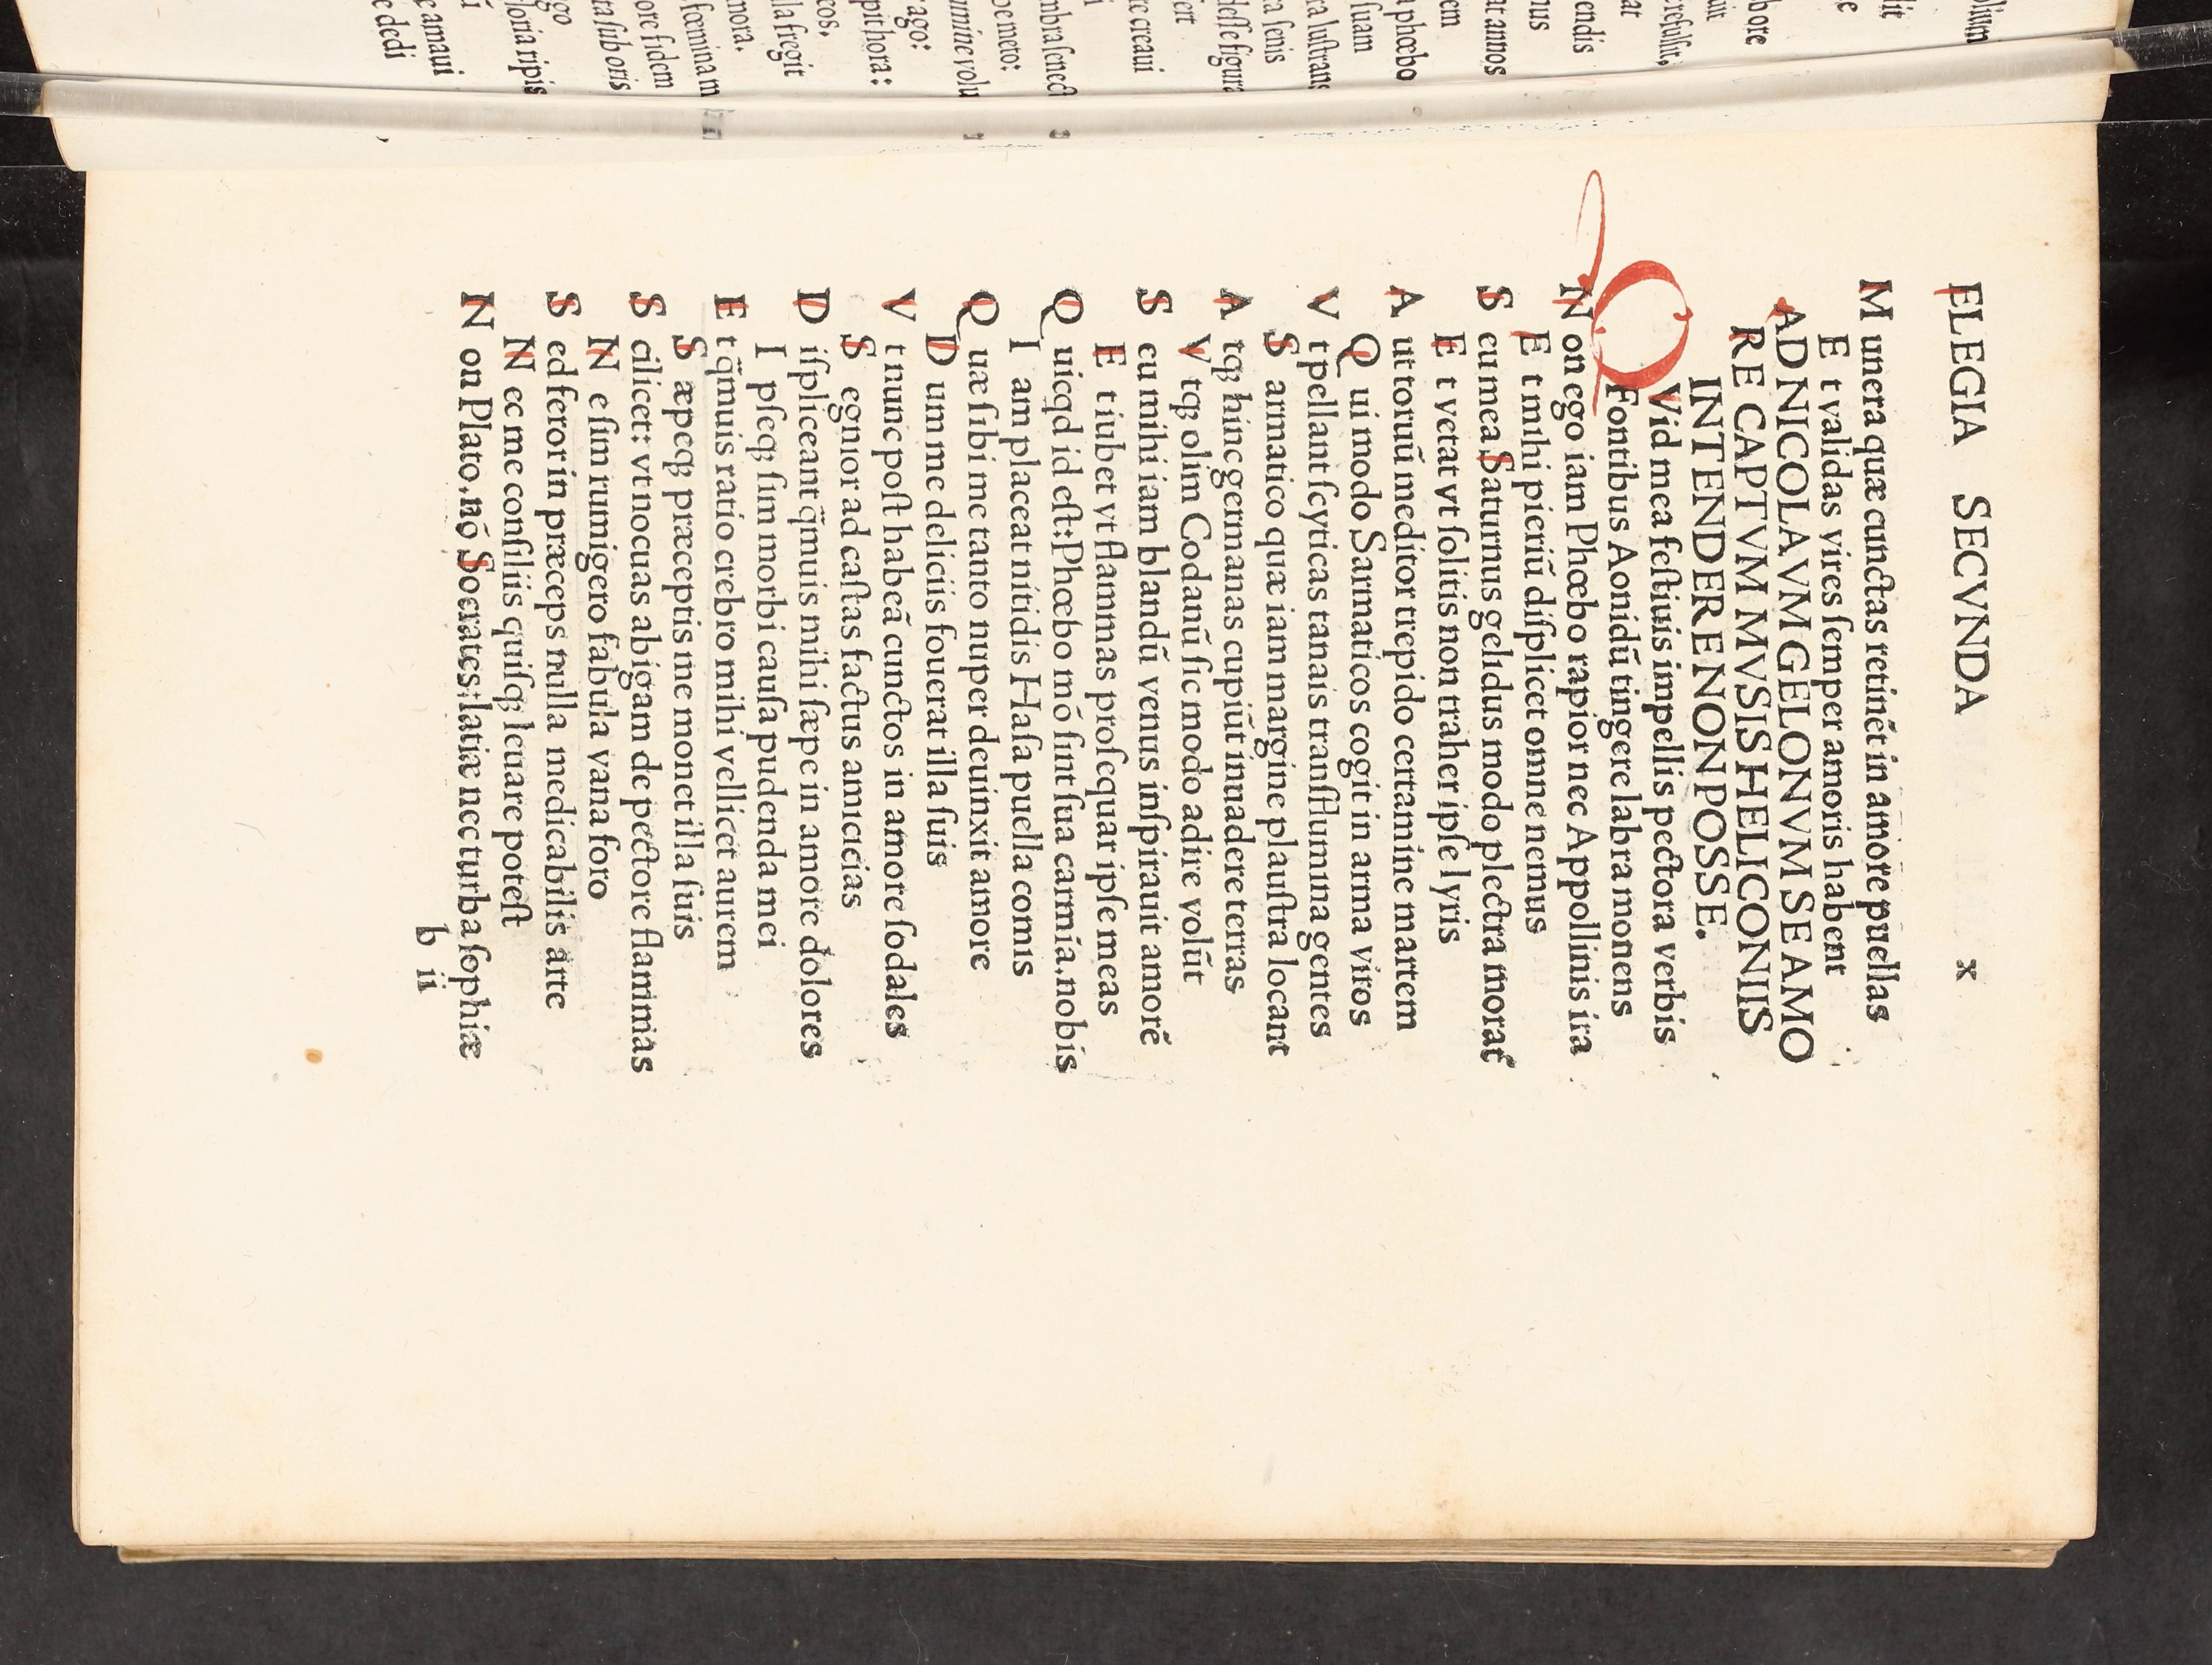 ELEGIA SECVNDA x
Munera quæ cunctas retinẽt in amore puellas
Et validas vires ſemper amoris habent
AD NICOLAVM GELONVM SE AMO
RE CAPTVM MVSIS HELICONIIS
INTENDERE NON POSSE.
QVid mea feſtiuis impellis pectora verbis
Fontibus Aonidũ tingere labra monens
Non ego iam Phœbo rapior nec Appollinis ira
Et mihi pieriũ diſplicet omne nemus
Seu mea Saturnus gelidus modo plectra morat᷑
Et vetat vt ſolitis non traher ipſe lyris
Aut toruũ meditor trepido certamine martem
Qui modo Sarmaticos cogit in arma viros
Vt pellant ſcyticas tanais tranſflumina gentes
Sarmatico quæ iam margine plauſtra locant
Atqꝫ hinc germanas cupiũt inuadere terras
Vtqꝫ olim Codanũ ſic modo adire volũt
Seu mihi iam blandũ venus inſpirauit amorẽ
Et iubet vt flammas proſequar ipſe meas
Quicqd id eſt: Phœbo mõ ſint ſua carmía. nobis
Iam placeat nítidis Haſa puella comis
Quæ ſibi me tanto nuper deuinxit amore
Dum me deliciis fouerat illa ſuis
Vt nunc poſt habeã cunctos in amore ſodales
Segnior ad caſtas factus amicicias
Diſpliceant q̃muis mihi ſæpe in amore dolores
Ipſeqꝫ ſim morbi cauſa pudenda mei
Et q̃muis ratio crebro mihi vellicet aurem
Sæpeqꝫ præceptis me monet illa ſuis
Scilicet: vt nocuas abigam de pectore flammas
Ne ſim rumigero fabula vana foro
Sed feror in præceps nulla medicabilis arte
Nec me conſiliis quiſqꝫ leuare poteſt
Non Plato. nõ Socrates: latiæ nec turba ſophiæ
b ii